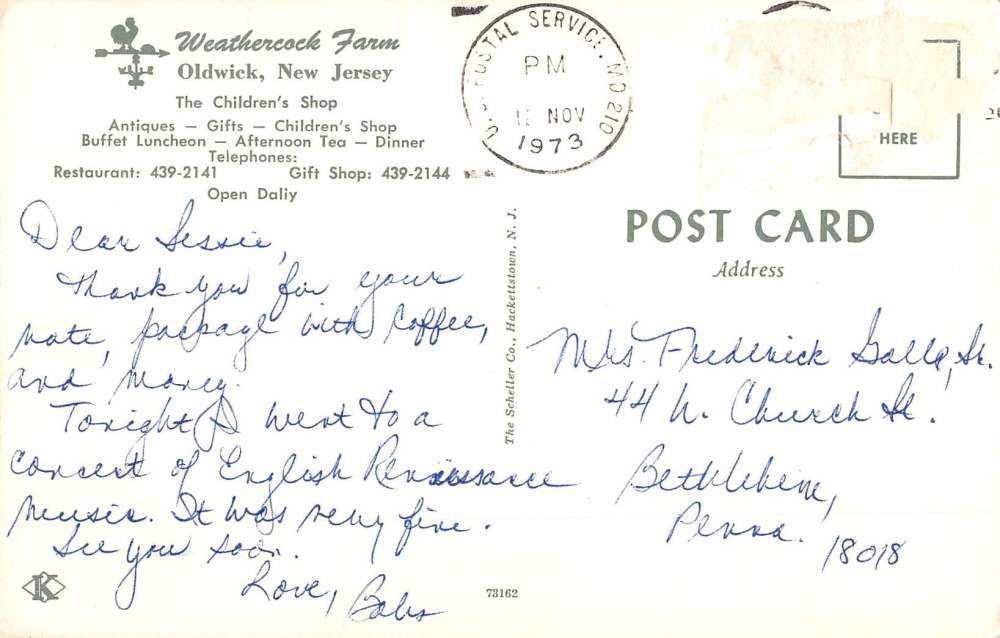 Weathercock Farm
Oldwick, New Jersey
The Children's Shop
Antiques — Gifts — Children's Shop
Buffet Luncheon — Afternoon Tea — Dinner
Telephones:
Restaurant: 439-2141 Gift Shop: 439-2144
Open Daliy
U.S. POSTAL SERVICE, MD 210
PM
NOV
1973
HERE
POST CARD
Address
Dear Jessie,
Thank you for your
note, package with coffee,
and money.
Tonight I went to a
concert of English Renaissance
Music. It was very fine.
See you soon.
Love, Babs
The Scheller Co., Hackettstown, N. J.
Mrs. Frederick Sr.
44 N. Church St.
Bethlehem,
Penna. 18018
K
73162